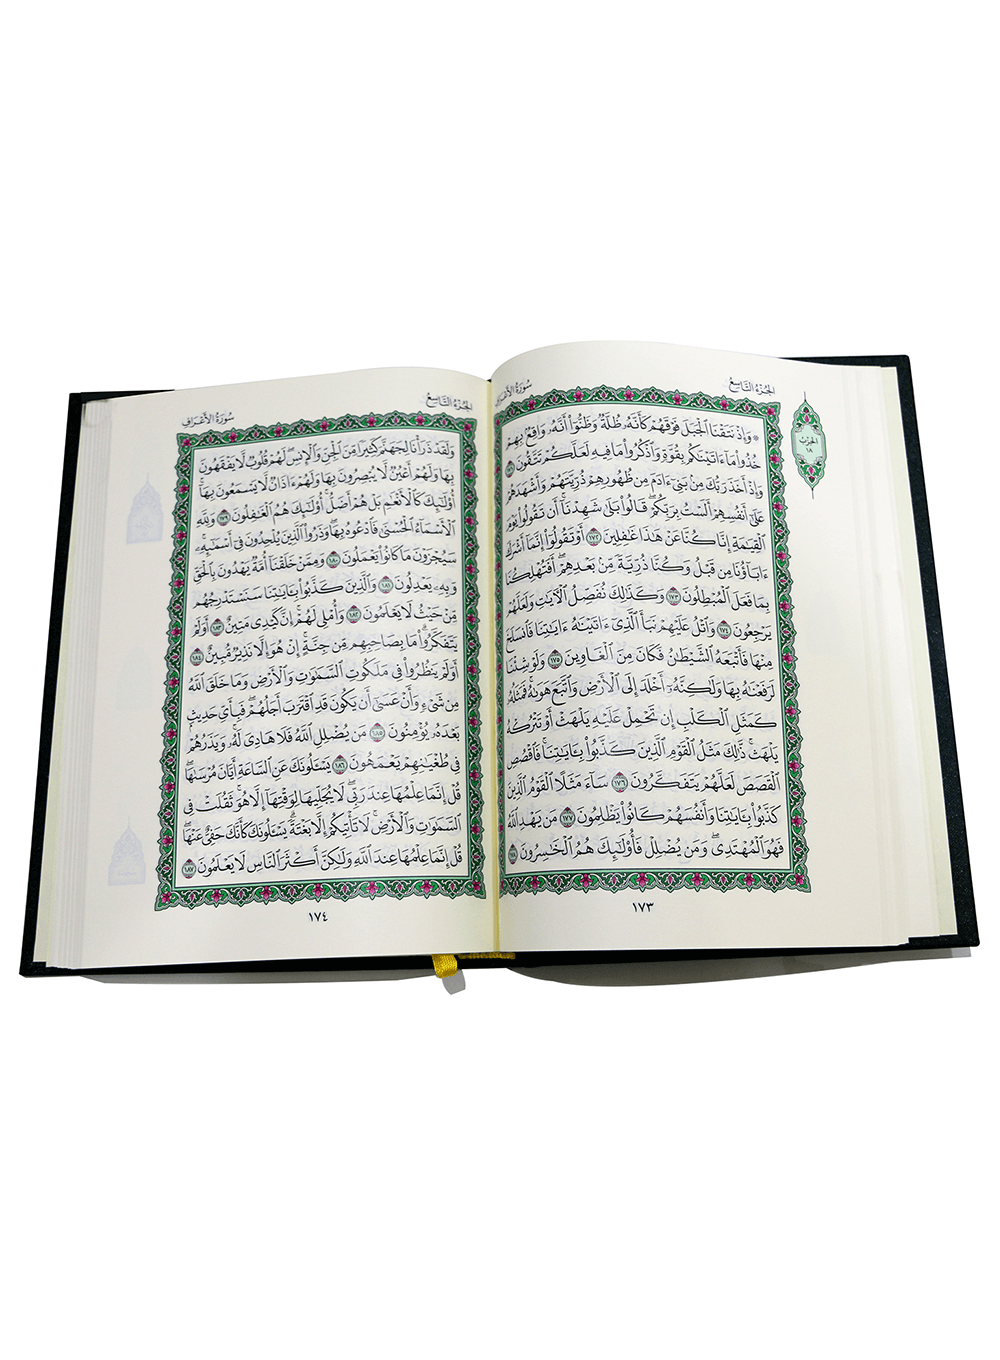 الجزء التاسع
سورة الأعراف
الحزب
١٨
۞ وَإِذ نَتَقْنَا الْجَبَلَ فَوْقَهُمْ كَأَنَّهُ ظُلَّةٌ وَظَنُّوا أَنَّهُ وَاقِعٌ بِهِمْ
خُذُوا مَا ءَاتَيْنَاكُم بِقُوَّةٍ وَاذْكُرُوا مَا فِيهِ لَعَلَّكُمْ تَتَّقُونَ ١٧١
وَإِذْ أَخَذَ رَبُّكَ مِن بَنِي ءَادَمَ مِن ظُهُورِهِمْ ذُرِّيَّتَهُمْ وَأَشْهَدَهُمْ
عَلَى أَنفُسِهِمْ أَلَسْتُ بِرَبِّكُمْ قَالُوا بَلَى شَهِدْنَا أَن تَقُولُوا يَوْمَ
الْقِيَامَةِ إِنَّا كُنَّا عَنْ هَذَا غَافِلِينَ ١٧٢ أَوْ تَقُولُوا إِنَّمَا أَشْرَكَ
ءَابَاؤُنَا مِن قَبْلُ وَكُنَّا ذُرِّيَّةً مِّن بَعْدِهِمْ أَفَتُهْلِكُنَا
بِمَا فَعَلَ الْمُبْطِلُونَ ١٧٣ وَكَذَلِكَ نُفَصِّلُ الْآيَاتِ وَلَعَلَّهُمْ
يَرْجِعُونَ ١٧٤ وَاتْلُ عَلَيْهِمْ نَبَأَ الَّذِي ءَاتَيْنَاهُ ءَايَاتِنَا فَانسَلَخَ
مِنْهَا فَأَتْبَعَهُ الشَّيْطَانُ فَكَانَ مِنَ الْغَاوِينَ ١٧٥ وَلَوْ شِئْنَا
لَرَفَعْنَاهُ بِهَا وَلَكِنَّهُ أَخْلَدَ إِلَى الْأَرْضِ وَاتَّبَعَ هَوَاهُ فَمَثَلُهُ
كَمَثَلِ الْكَلْبِ إِن تَحْمِلْ عَلَيْهِ يَلْهَثْ أَوْ تَتْرُكْهُ
يَلْهَث ذَّلِكَ مَثَلُ الْقَوْمِ الَّذِينَ كَذَّبُوا بِآيَاتِنَا فَاقْصُصِ
الْقَصَصَ لَعَلَّهُمْ يَتَفَكَّرُونَ ١٧٦ سَاءَ مَثَلًا الْقَوْمُ الَّذِينَ
كَذَّبُوا بِآيَاتِنَا وَأَنفُسَهُمْ كَانُوا يَظْلِمُونَ ١٧٧ مَن يَهْدِ اللَّهُ
فَهُوَ الْمُهْتَدِي وَمَن يُضْلِلْ فَأُولَئِكَ هُمُ الْخَاسِرُونَ ١٧٨
١٧٣
الجزء التاسع
سورة الأعراف
وَلَقَدْ ذَرَأْنَا لِجَهَنَّمَ كَثِيرًا مِّنَ الْجِنِّ وَالْإِنسِ لَهُمْ قُلُوبٌ لَّا يَفْقَهُونَ
بِهَا وَلَهُمْ أَعْيُنٌ لَّا يُبْصِرُونَ بِهَا وَلَهُمْ ءَاذَانٌ لَّا يَسْمَعُونَ بِهَا
أُولَئِكَ كَالْأَنْعَامِ بَلْ هُمْ أَضَلُّ أُولَئِكَ هُمُ الْغَافِلُونَ ١٧٩ وَلِلَّهِ
الْأَسْمَاءُ الْحُسْنَى فَادْعُوهُ بِهَا وَذَرُوا الَّذِينَ يُلْحِدُونَ فِي أَسْمَائِهِ
سَيُجْزَوْنَ مَا كَانُوا يَعْمَلُونَ ١٨٠ وَمِمَّنْ خَلَقْنَا أُمَّةٌ يَهْدُونَ بِالْحَقِّ
وَبِهِ يَعْدِلُونَ ١٨١ وَالَّذِينَ كَذَّبُوا بِآيَاتِنَا سَنَسْتَدْرِجُهُم
مِّنْ حَيْثُ لَا يَعْلَمُونَ ١٨٢ وَأُمْلِي لَهُمْ إِنَّ كَيْدِي مَتِينٌ ١٨٣ أَوَلَمْ
يَتَفَكَّرُوا مَا بِصَاحِبِهِم مِّن جِنَّةٍ إِنْ هُوَ إِلَّا نَذِيرٌ مُّبِينٌ ١٨٤
أَوَلَمْ يَنظُرُوا فِي مَلَكُوتِ السَّمَاوَاتِ وَالْأَرْضِ وَمَا خَلَقَ اللَّهُ
مِن شَيْءٍ وَأَنْ عَسَى أَن يَكُونَ قَدِ اقْتَرَبَ أَجَلُهُمْ فَبِأَيِّ حَدِيثٍ
بَعْدَهُ يُؤْمِنُونَ ١٨٥ مَن يُضْلِلِ اللَّهُ فَلَا هَادِيَ لَهُ وَيَذَرُهُمْ
فِي طُغْيَانِهِمْ يَعْمَهُونَ ١٨٦ يَسْأَلُونَكَ عَنِ السَّاعَةِ أَيَّانَ مُرْسَاهَا
قُلْ إِنَّمَا عِلْمُهَا عِندَ رَبِّي لَا يُجَلِّيهَا لِوَقْتِهَا إِلَّا هُوَ ثَقُلَتْ فِي
السَّمَاوَاتِ وَالْأَرْضِ لَا تَأْتِيكُمْ إِلَّا بَغْتَةً يَسْأَلُونَكَ كَأَنَّكَ حَفِيٌّ عَنْهَا
قُلْ إِنَّمَا عِلْمُهَا عِندَ اللَّهِ وَلَكِنَّ أَكْثَرَ النَّاسِ لَا يَعْلَمُونَ ١٨٧
١٧٤